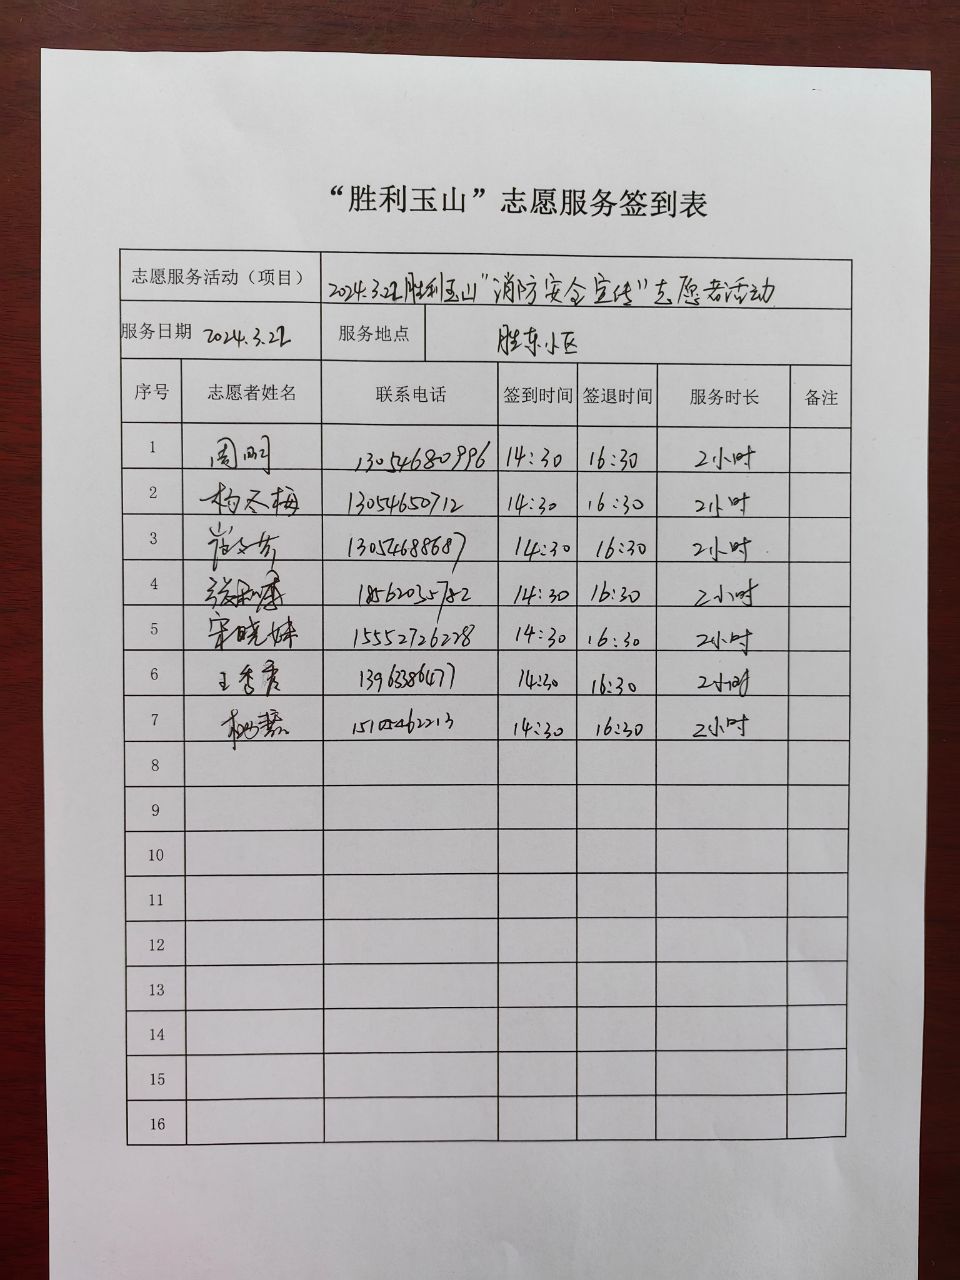 “胜利玉山”志愿服务签到表
志愿服务活动（项目） 2024.3.22胜利玉山“消防安全宣传”志愿者活动
服务日期 2024.3.22 服务地点 胜东小区
序号 志愿者姓名 联系电话 签到时间 签退时间 服务时长 备注
1 周明 13054680996 14:30 16:30 2小时
2 杨冬梅 13054650712 14:30 16:30 2小时
3 13054688687 14:30 16:30 2小时
4 18562035782 14:30 16:30 2小时
5 宋晓妹 15552726228 14:30 16:30 2小时
6 王秀彦 13963386477 14:30 16:30 2小时
7 杨慧 15105462213 14:30 16:30 2小时
8
9
10
11
12
13
14
15
16